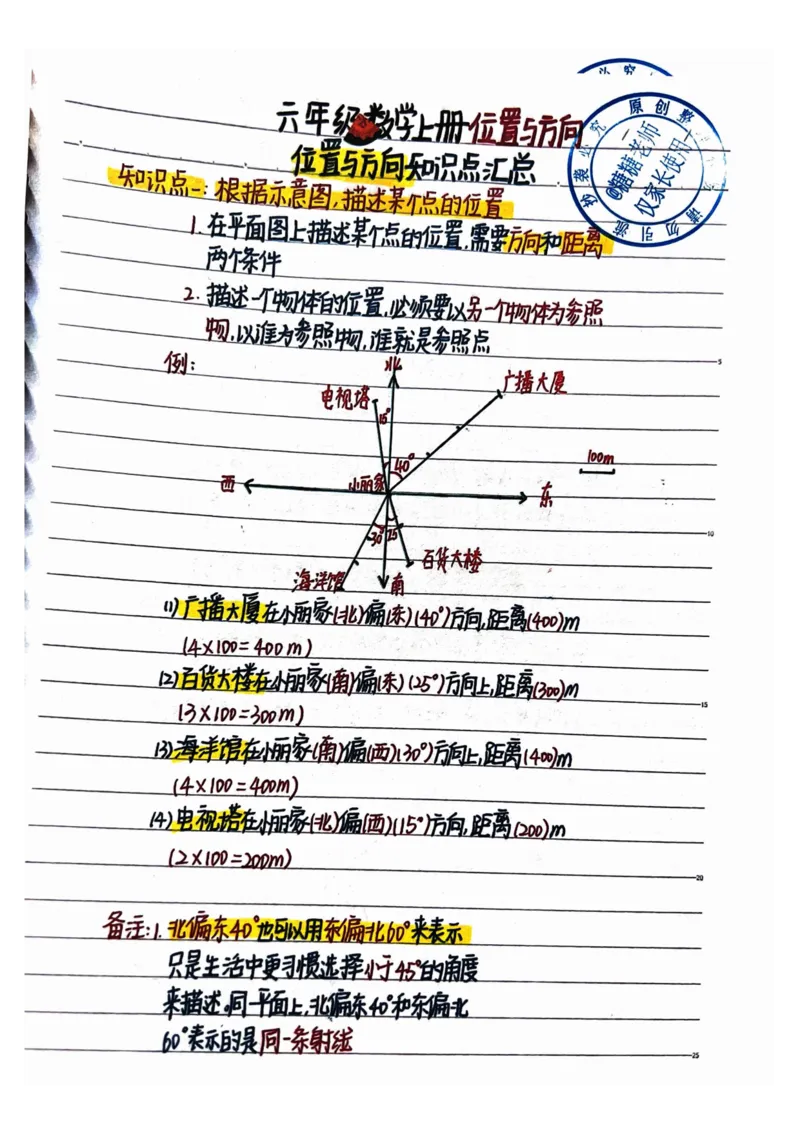 六年级数学上册位置与方向
位置与方向知识点汇总
原创整
@糖糖老师
仅家长使用
请勿引流
抄袭必究
必究
知识点一:根据示意图,描述某个点的位置
1.在平面图上描述某个点的位置,需要方向和距离
两个条件
2.描述一个物体的位置,必须要以另一个物体为参照
物,以谁为参照物,谁就是参照点
例:
北
电视塔
广播大厦
15°
100m
40°
西
小丽家
东
30°
25
百货大楼
海洋馆
南
(1)广播大厦在小丽家(北)偏(东)(40°)方向,距离(400)m
(4×100=400m)
(2)百货大楼在小丽家(南)偏(东)(25°)方向上,距离(300)m
(3×100=300m)
(3)海洋馆在小丽家(南)偏(西)(30°)方向上,距离(400)m
(4×100=400m)
(4)电视塔在小丽家(北)偏(西)(15°)方向,距离(200)m
(2×100=200m)
备注:1.北偏东40°也可以用东偏北60°来表示
只是生活中更习惯选择小于45°的角度
来描述。同一平面上,北偏东40°和东偏北
60°表示的是同一条射线
5
10
15
20
25